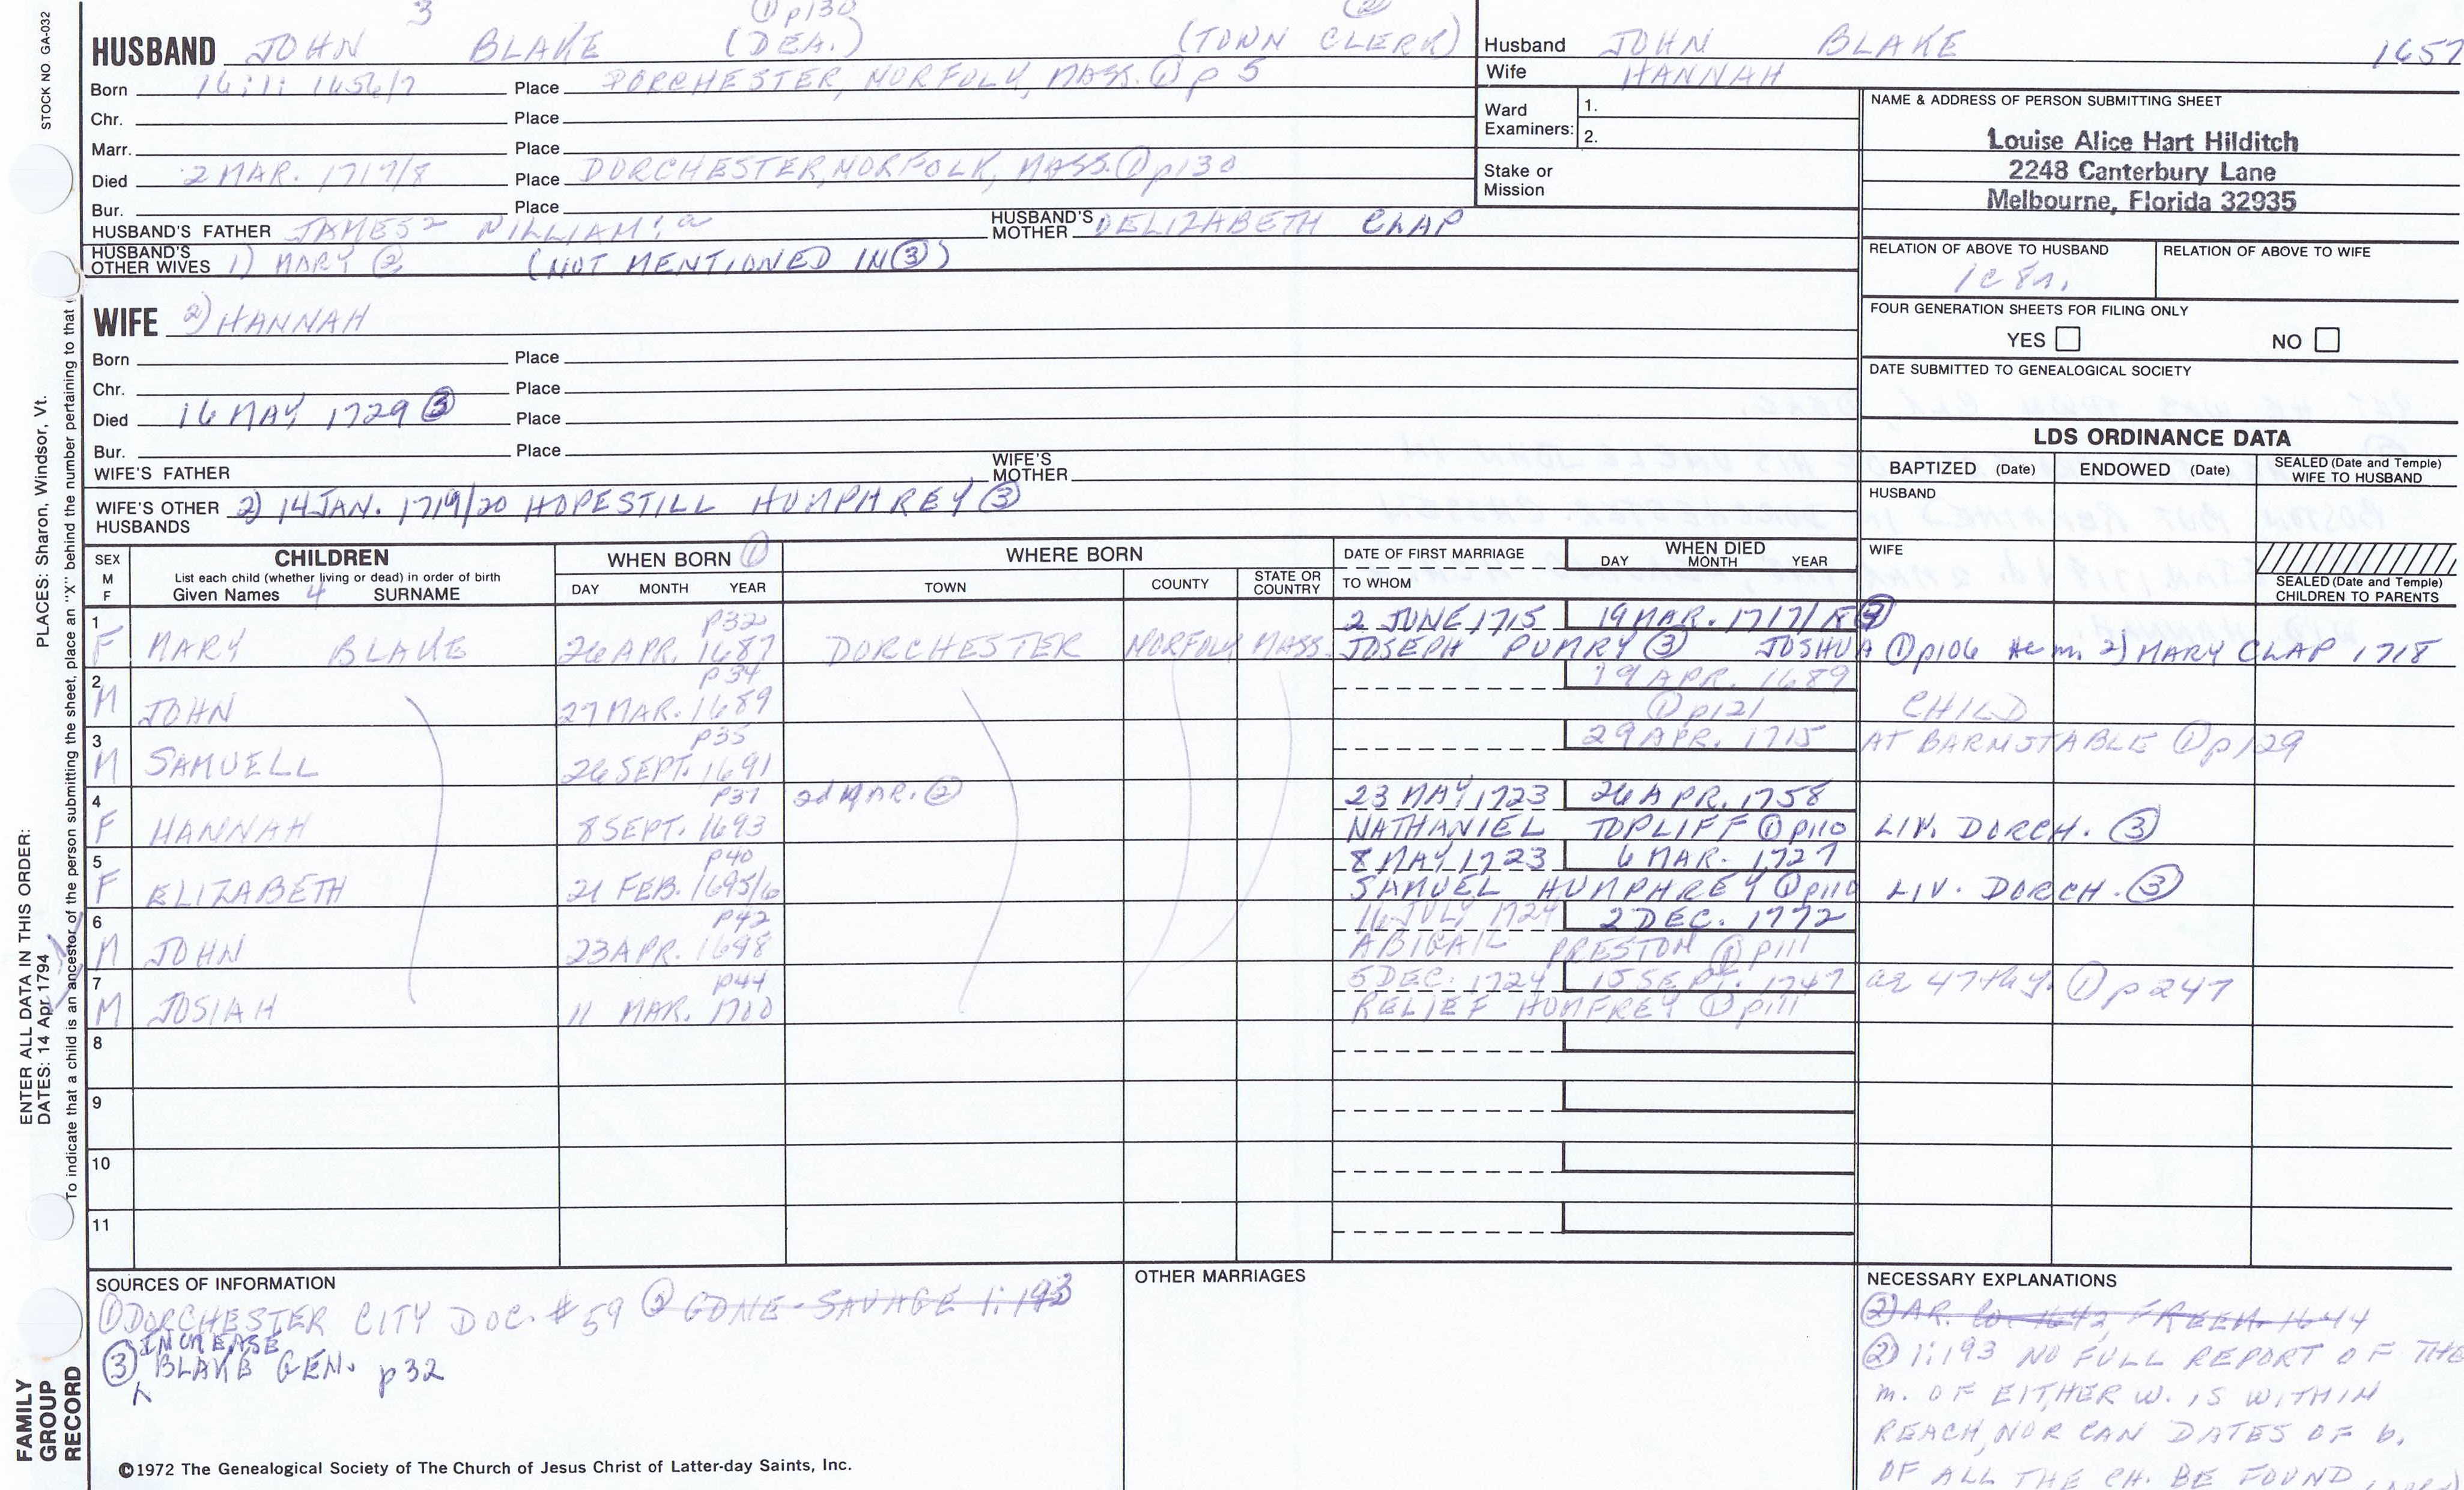 3 ① p130 ②
HUSBAND JOHN BLAKE (DEA.) (TOWN CLERK)
Born 16:1: 1656/7 Place DORCHESTER, NORFOLK, MASS. ① p 5
Chr. Place
Marr. Place
Died 2 MAR. 1717/8 Place DORCHESTER, NORFOLK, MASS. ① p130
Bur. Place
HUSBAND'S FATHER JAMES² WILLIAM¹ᵃ HUSBAND'S MOTHER ELIZABETH CLAP
HUSBAND'S OTHER WIVES 1) MARY ② (NOT MENTIONED IN ③)
Husband JOHN BLAKE 1657
Wife HANNAH
Ward Examiners: 1.
2.
Stake or Mission
NAME & ADDRESS OF PERSON SUBMITTING SHEET
Louise Alice Hart Hilditch
2248 Canterbury Lane
Melbourne, Florida 32935
RELATION OF ABOVE TO HUSBAND RELATION OF ABOVE TO WIFE
1c 8r.
FOUR GENERATION SHEETS FOR FILING ONLY
YES NO
DATE SUBMITTED TO GENEALOGICAL SOCIETY
WIFE 2) HANNAH
Born Place
Chr. Place
Died 16 MAY 1729 ③ Place
Bur. Place
WIFE'S FATHER WIFE'S MOTHER
WIFE'S OTHER HUSBANDS 2) 14 JAN. 1719/20 HOPESTILL HUMPHREY ③
LDS ORDINANCE DATA
BAPTIZED (Date) ENDOWED (Date) SEALED (Date and Temple) WIFE TO HUSBAND
HUSBAND
WIFE
SEALED (Date and Temple) CHILDREN TO PARENTS
SEX M F CHILDREN WHEN BORN ① WHERE BORN DATE OF FIRST MARRIAGE WHEN DIED
List each child (whether living or dead) in order of birth
Given Names 4 SURNAME DAY MONTH YEAR TOWN COUNTY STATE OR COUNTRY TO WHOM DAY MONTH YEAR
1 p32 2 JUNE 1715 19 MAR. 1717/8 ③
F MARY BLAKE 26 APR. 1687 DORCHESTER NORFOLK MASS. JOSEPH PUMRY ③ JOSHUA ① p106 He m. 2) MARY CLAP 1718
2 p34 19 APR. 1689
M JOHN 27 MAR. 1689 ① p121 CHILD
3 p35 29 APR. 1715 AT BARNSTABLE ① p129
M SAMUELL 26 SEPT. 1691
4 p37 2d MAR. ② 23 MAY 1723 26 APR. 1758
F HANNAH 8 SEPT. 1693 NATHANIEL TOPLIFF ① p110 LIV. DORCH. ③
5 p40 8 MAY 1723 6 MAR. 1727
F ELIZABETH 21 FEB. 1695/6 SAMUEL HUMPHREY ① p110 LIV. DORCH. ③
6 p42 16 JULY 1724 2 DEC. 1772
M JOHN 23 APR. 1698 ABIGAIL PRESTON ① p111
7 p44 5 DEC. 1724 15 SEPT. 1747 ae 47thy. ① p 247
M JOSIAH 11 MAR. 1700 RELIEF HUMFREY ① p111
8
9
10
11
SOURCES OF INFORMATION
① DORCHESTER CITY DOC. #59 ② GDNE - SAVAGE 1:193
③ INCREASE BLAKE GEN. p32
OTHER MARRIAGES
NECESSARY EXPLANATIONS
② AR. Co. 1642, FREEM. 1644
② 1:193 NO FULL REPORT OF THE
m. OF EITHER W. IS WITHIN
REACH, NOR CAN DATES OF b.
OF ALL THE CH. BE FOUND
©1972 The Genealogical Society of The Church of Jesus Christ of Latter-day Saints, Inc.
STOCK NO. GA-032
PLACES: Sharon, Windsor, Vt.
ENTER ALL DATA IN THIS ORDER:
DATES: 14 Apr 1794
To indicate that a child is an ancestor of the person submitting the sheet, place an "X" behind the number pertaining to that
FAMILY
GROUP
RECORD